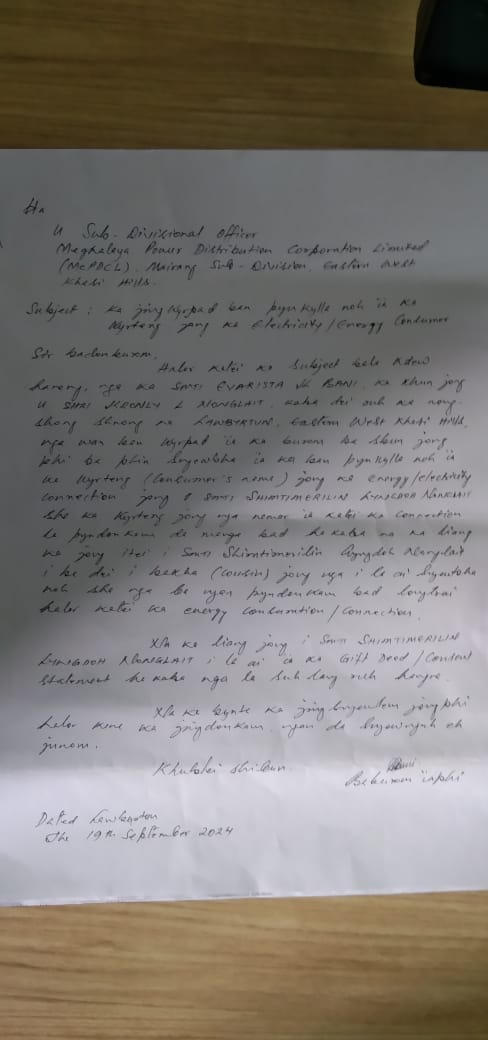 Ha
U Sub-Divisional Officer
Meghalaya Power Distribution Corporation Limited
(MePDCL), Mairang Sub-Division, Eastern West
Khasi Hills.
Subject : Ka jing kyrpad ban pynkylla noh ia ka
kyrteng jong ka Electricity/Energy Consumer
Sir badonburom,
Halor katei ka subject kaba kdew
haneng, nga ka SMTI EVARISTA JK BANI, ka khun jong
U SHRI L NONGLAIT, kaba dei ruh ka nong-
shong shnong na LAWBYRTUN, Eastern West Khasi Hills,
nga wan ban kyrpad ia ka burom ba khun jong
phi ba phin sngewbha ia ka ban pynkylla noh ia
ka kyrteng (Consumer's name) jong ka energy/electricity
connection jong i SMTI SHIMTIMERILIN LYNGDOH NONGLAIT
sha ka kyrteng jong nga namar ia katei ka connection
la pyndonkam da ma nga bad ha kaba na ka liang
ka jong itei i Smti Shimtimerilin Lyngdoh Nonglait
i ba dei i (cousin) jong nga i la ai sngewbha
noh sha nga ba ngan pyndonkam bad
halor katei ka energy consumtion/connection.
Na ka liang jong i SMTI SHIMTIMERILIN
LYNGDOH NONGLAIT i la ai ia ka Gift Deed/Consent
Statement ha kaba nga la lang ruh hangne.
Na ka bynta ka jing jong phi
halor kane ka jingdonkam, ngan da sngewnguh eh
junom.
Khublei shibun.
Bani
Baburom iaphi
Dated
The 19th September 2024